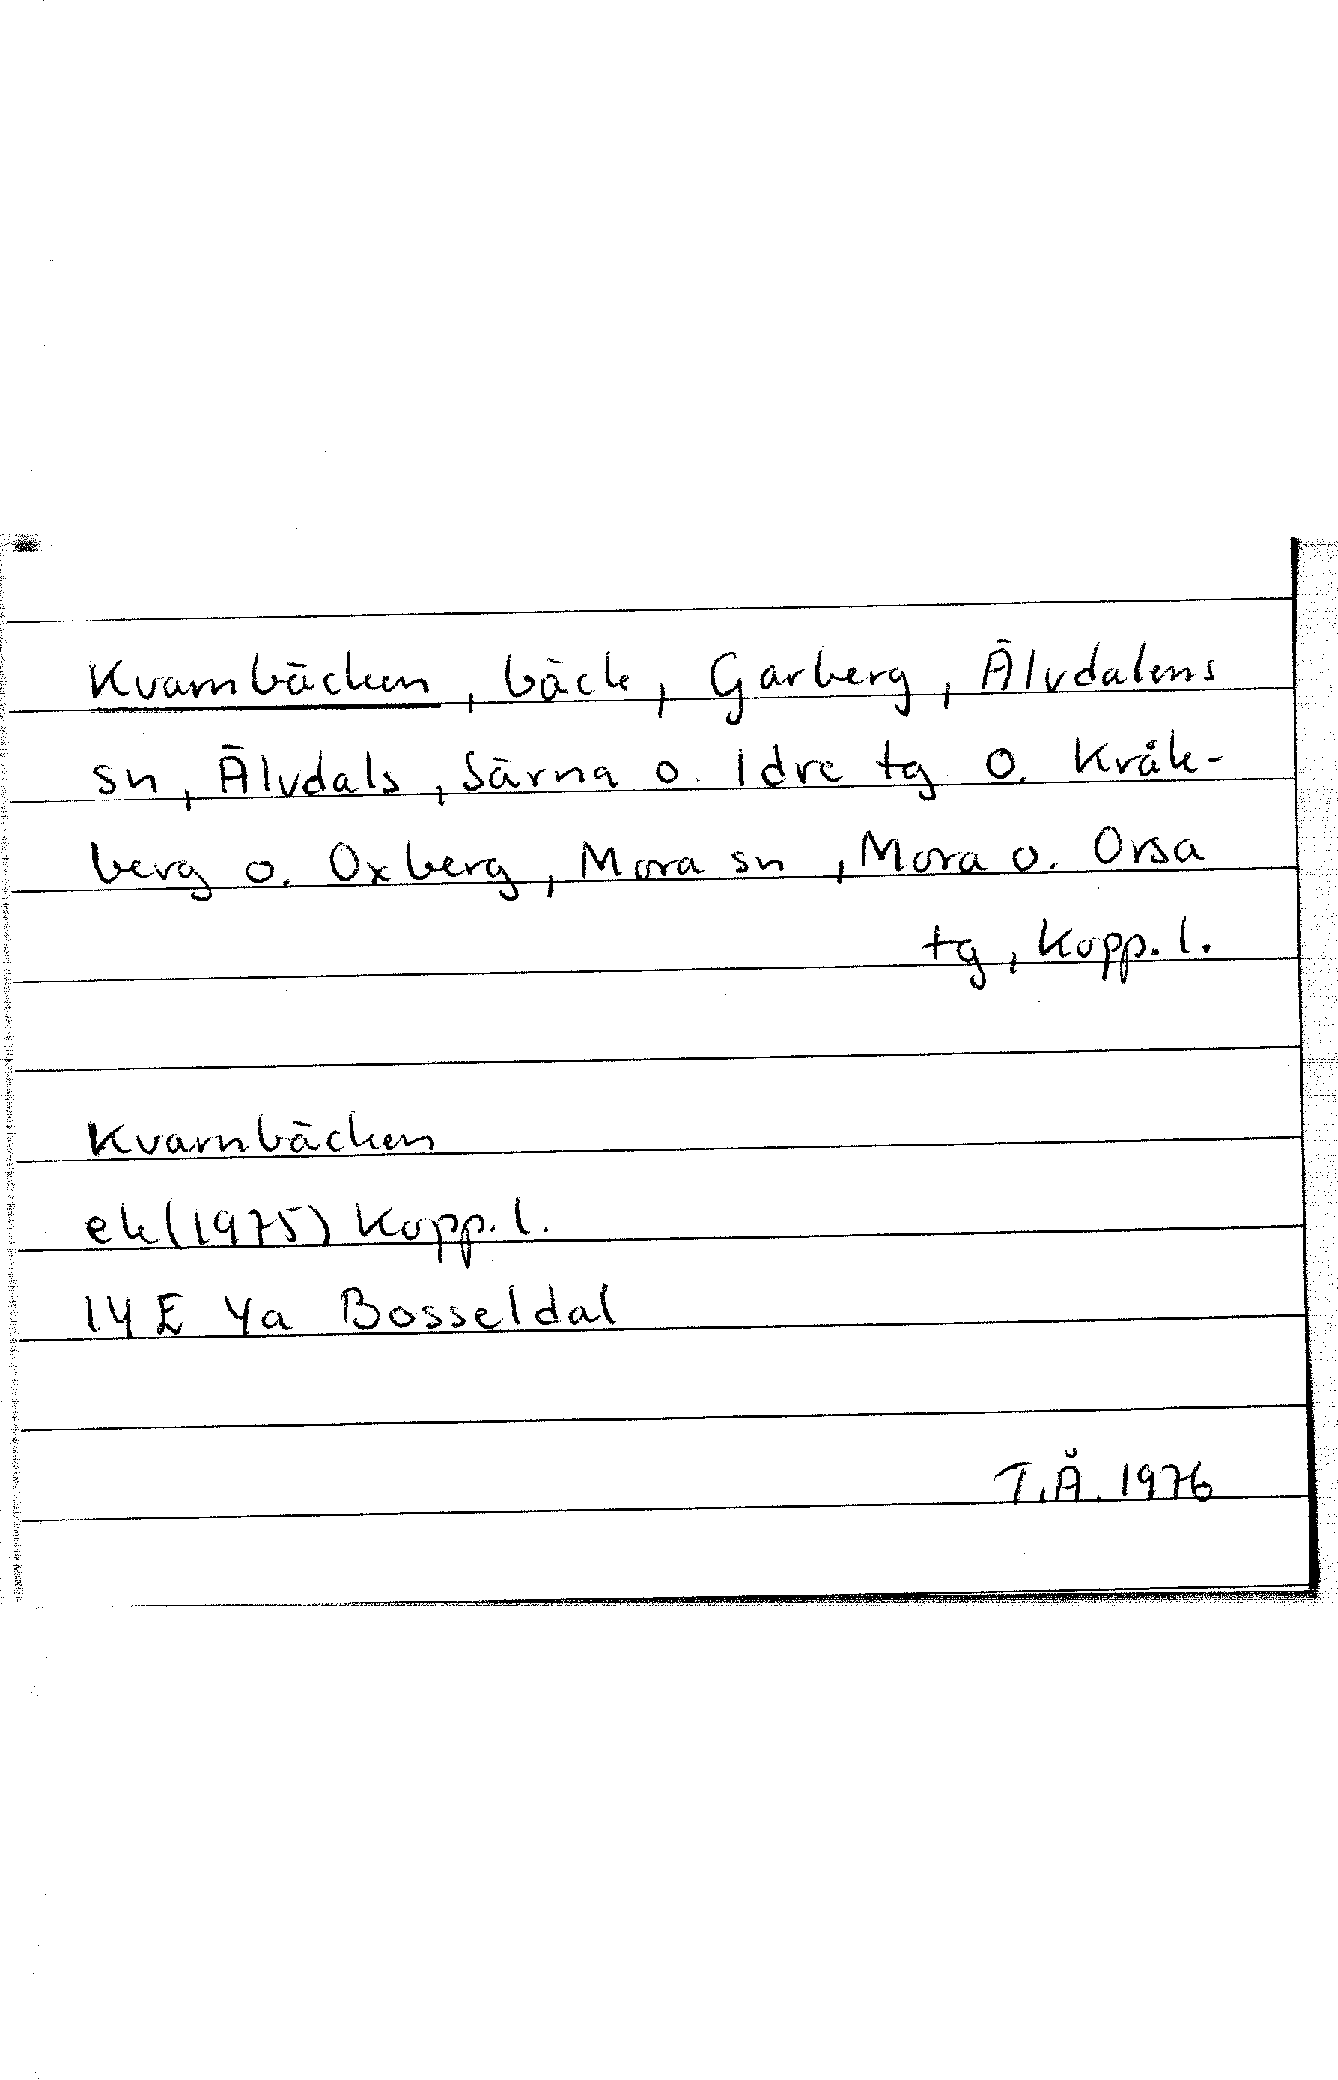 Kvarnbäcken, bäck, Garberg, Älvdalens
sn, Älvdals, Särna o. Idre tg o. Kråk-
berg o. Oxberg, Mora sn, Mora o. Orsa
tg, Kopp. l.
Kvarnbäcken
ek(1975) Kopp. l.
14 E 4a Bosseldal
T.Å. 1976